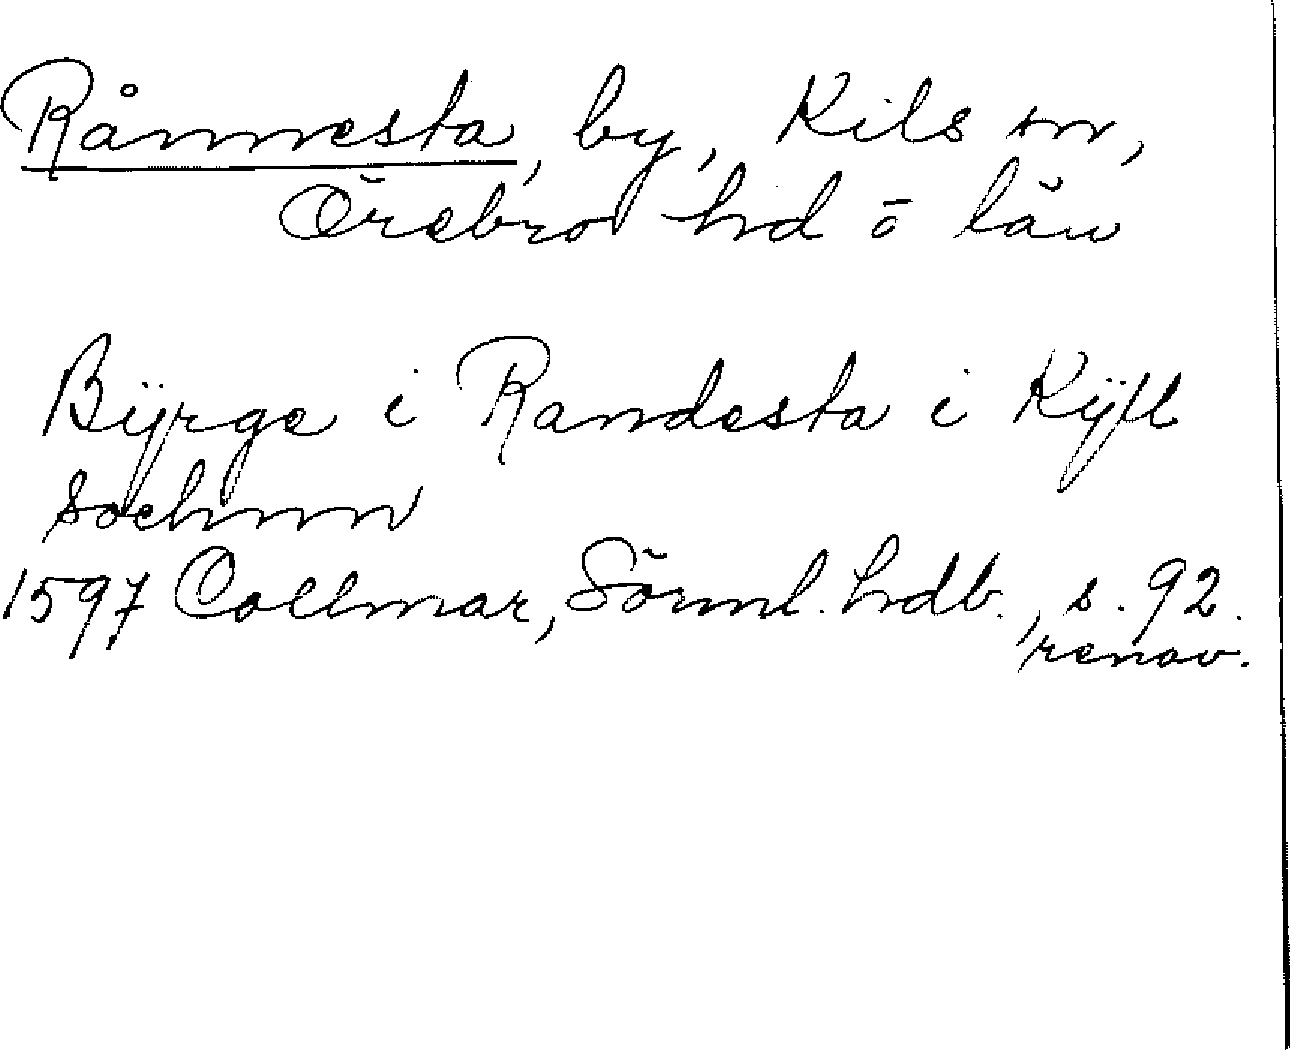 Rånnesta, by, Kils sn,
Örebro hd o län
Bÿrge i Randesta i Kÿll
sochnn
1597 Collmar, Sörml. hdb., s. 92.
renov.